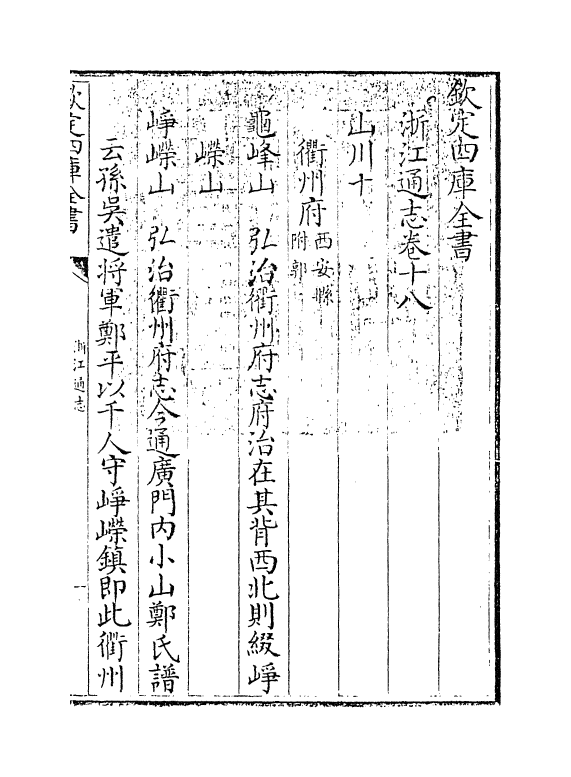 欽定四庫全書
浙江通志卷十八
山川十
衢州府西安縣附郭
龜峰山　弘治衢州府志府治在其背西北則綴崢
嶸山
崢嶸山　弘治衢州府志今通廣門内小山鄭氏譜
云孫吳遣將軍鄭平以千人守崢嶸鎮即此衢州
欽定四庫全書
浙江通志
一